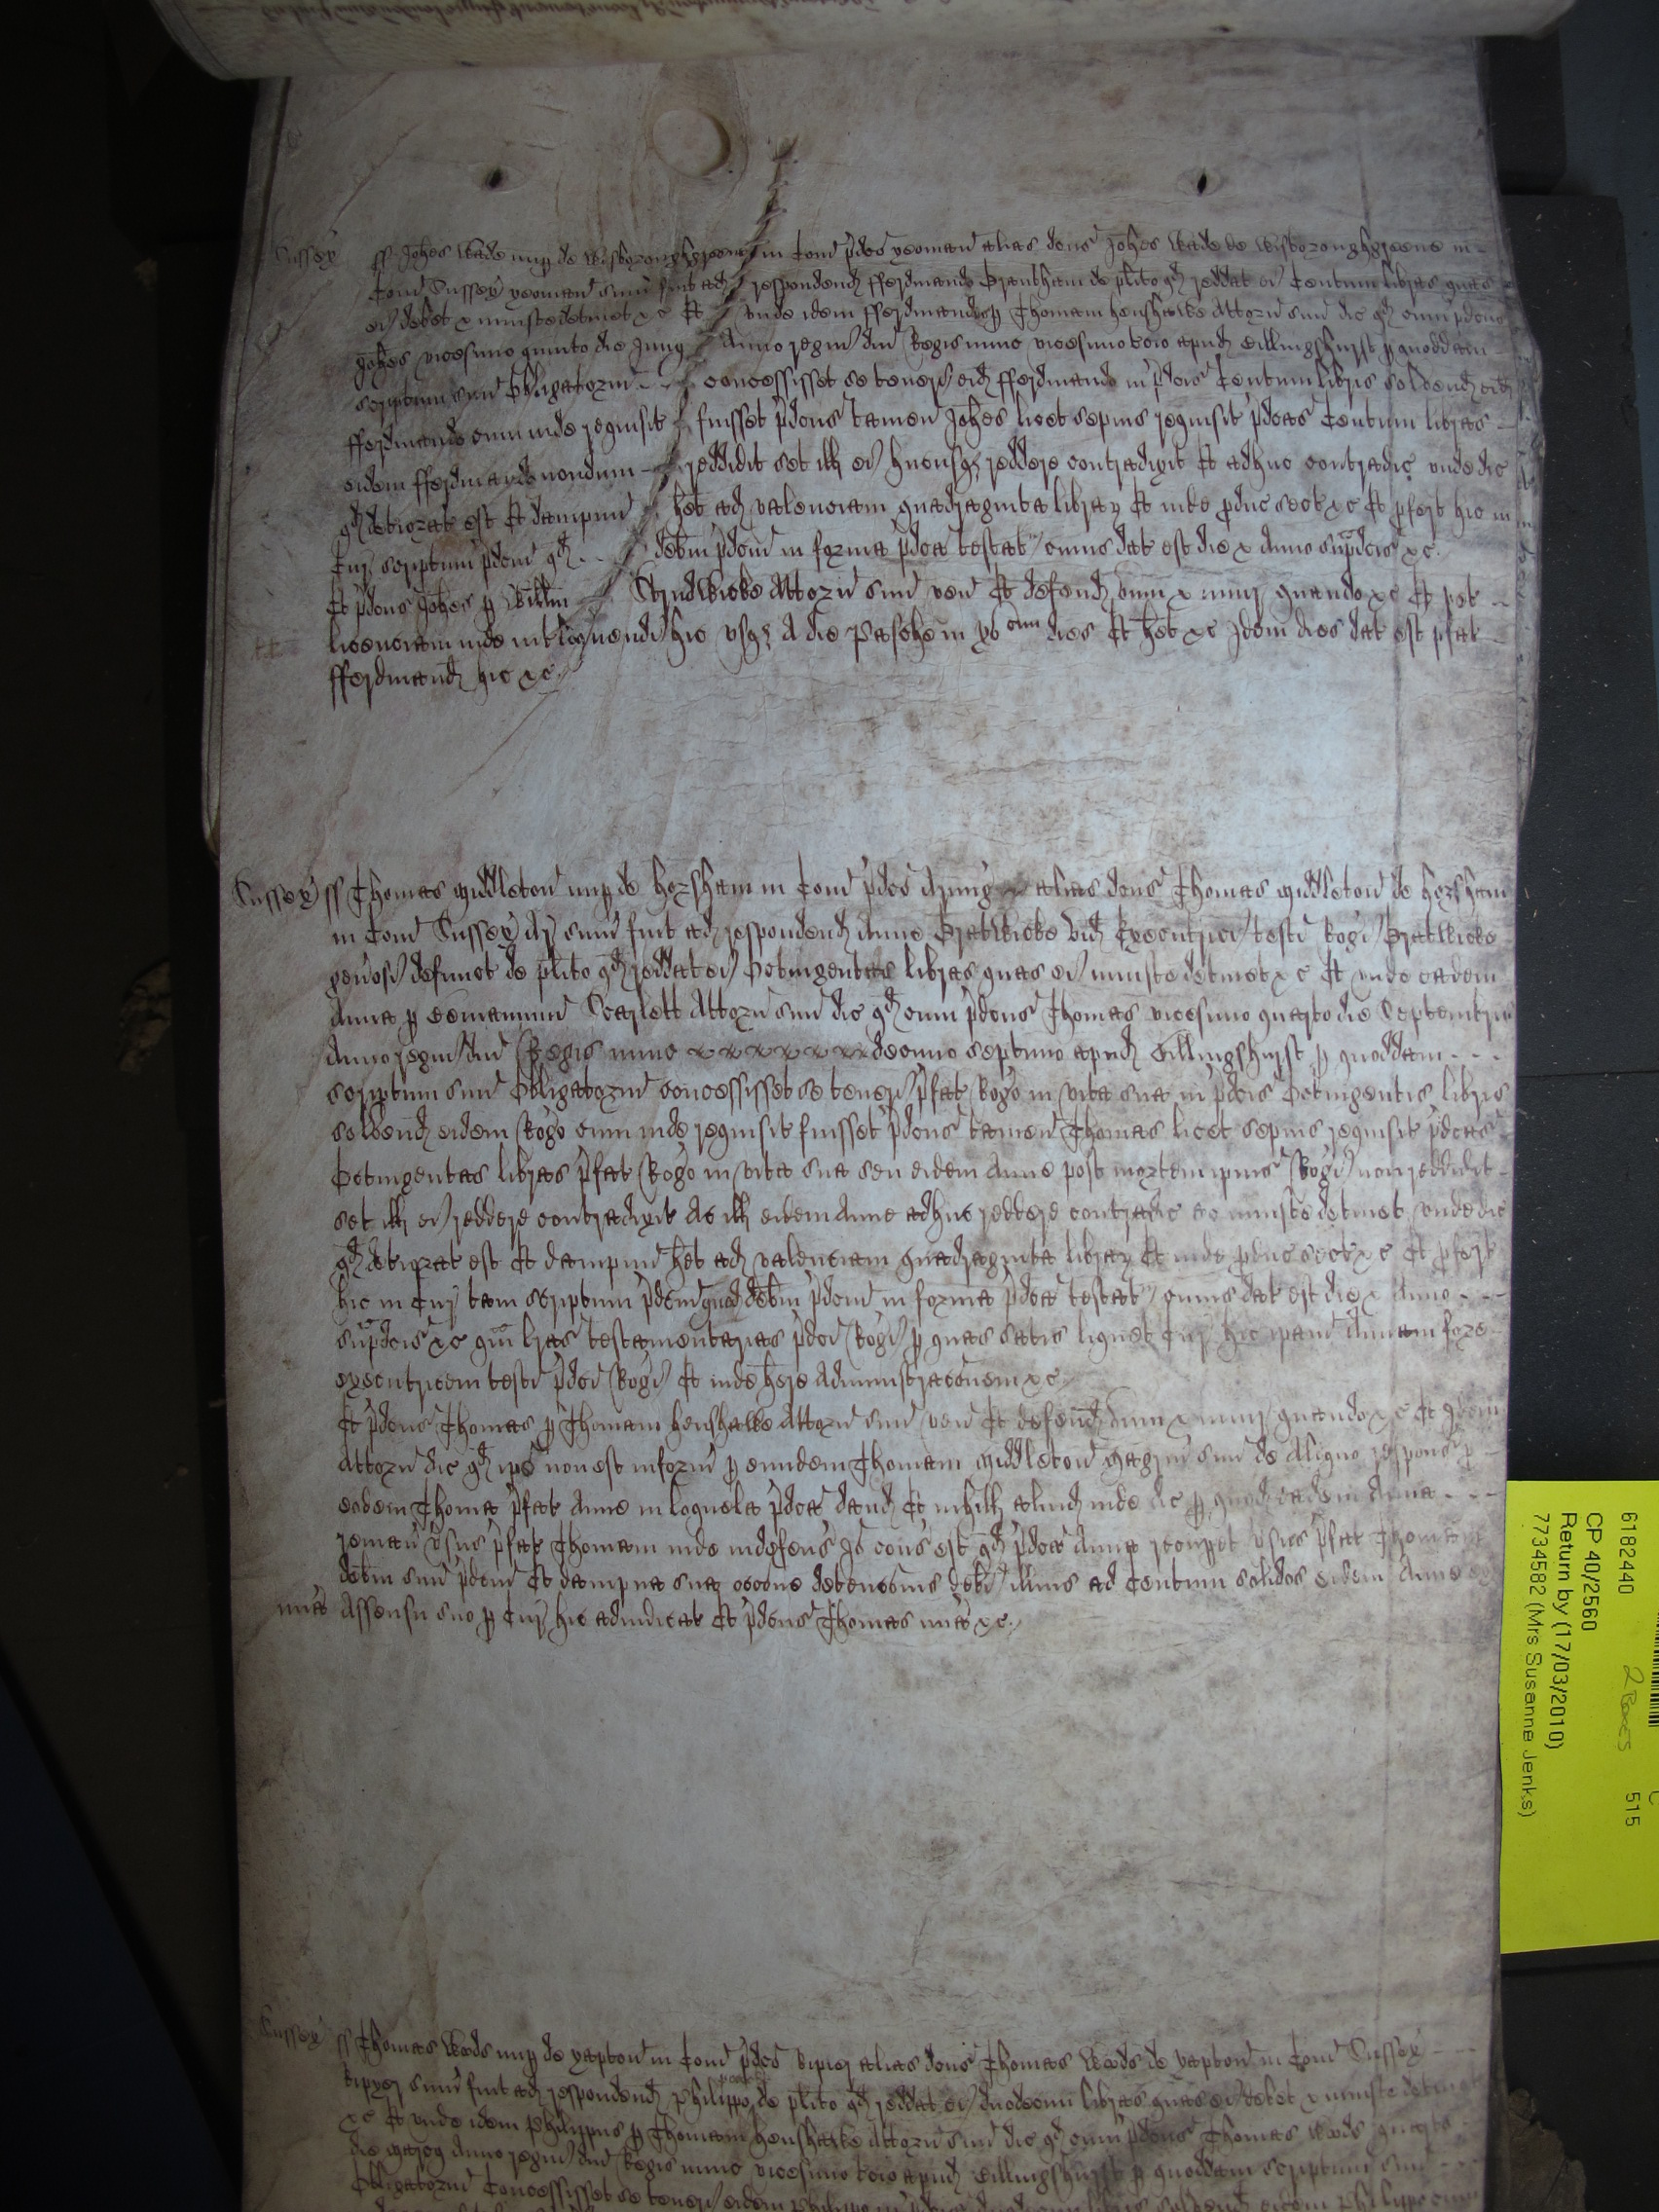 Sussex ss Johes Wade nup de Wisboroughgreene in Com pdco yeoman alias dcus Johes Wade de Wisboroughgreene in
Com Sussex yeoman sum fuit ad respondend fferdinando Brankham de plito qd reddat ei Centum libras quas
ei debet & iniuste detinet &c Et unde idem fferdinandus p Thomam Henshawe Attorn suu dic qd cum pdcus
Johes vicesimo quinto die Junij Anno regni dni Regis nunc vicesimo tcio apud Billingshurst p quoddam
scriptum suu Obligatorm concessisset se teneri eid fferdinando in pdcis Centum libris solvend eid
fferdinando cum inde requisit fuisset pdcus tamen Johes licet sepius requisit pdcas Centum libras
eidem fferdinando nondum reddidit set ill ei hucusq reddere contradixit Et adhuc contradic unde dic
qd deteriorat est Et dampnu het ad valenciam quadraginta librar Et inde pduc sect &c Et pfert hic in
Cur scriptum pdcm qd debm pdcm in forma pdca testat cuius dat est die & Anno supdcis &c
Et pdcus Johes p Willm Strudwicke Attorn suu ven Et defend vim & iniur quando &c Et pet
licenciam inde intloquendi hic usq A die Pasche in xv cim dies Et het &c Idem dies dat est pfat
fferdinand hic &c
Sussex ss Thomas Middleton nup de Horsham in Com pdco Armig alias dcus Thomas Middleton de Horsham
in Com Sussex Ar sum fuit ad respondend Anne Bratwicke vid Executrici testi Rogi Bratwicke
genosi defunct de plito qd reddat ei Octingentas libras quas ei iniuste detinet &c Et unde eadem
Anna p Edmundum Scarlett Attorn suu dic qd cum pdcus Thomas vicesimo quarto die Septembris
Anno regni dni Regis nunc decimo septimo apud Billingshurst p quoddam
scriptum suu Obligatorm concessisset se teneri pfat Rogo in vita sua in pdcis Octingentis libris
solvend eidem Rogo cum inde requisit fuisset pdcus tamen Thomas licet sepius requisit pdcas
Octingentas libras pfat Rogo in vita sua seu eidem Anne post mortem ipius Rogi non reddidit
set ill ei reddere contradixit Ac ill eidem Anne adhuc reddere contradic ac iniuste detinet unde dic
qd deteriorat est Et dampnu het ad valenciam quadraginta librar Et inde pduc sect &c Et pfert
hic in Cur tam scriptum pdcm quod debm pdcm in forma pdca testat cuius dat est die & Anno
supdcis &c qm lras testamentarias pdci Rogi p quas satis liquet Cur hic ipam Annam fore
executricem testi pdci Rogi Et inde here Administracoem &c
Et pdcus Thomas p Thomam Henshawe Attorn suu ven Et defend vim & iniur quando &c Et idem
Attorn dic qd ipe non est inform p eundem Thomam Middleton magrm suu de Aliquo respons p
eodem Thoma pfat Anne in loquela pdca dand Et nihil aliud inde dic p quod eadem Anna
reman vsus pfat Thomam inde indefens Io cons est qd pdca Anna recupet vsus pfat Thomam
debm suu pdcm Et dampna sua occone detencois debi illius ad Centum solidos eidem Anne ex
mia Assensu suo p Cur hic adiudicat Et pdcus Thomas mia &c
Sussex ss Thomas Woods nup de Yapton in Com pdco alias dcus Thomas Woods de Yapton in Com Sussex
sum fuit ad respondend Philippo de plito qd reddat ei duodecim libras quas ei debet & iniuste detinet
&c Et unde idem Philippus p Thomam Henshawe Attorn suu dic qd cum pdcus Thomas Woods quarto
die Marcij Anno regni dni Regis nunc vicesimo tcio apud Billingshurst p quoddam scriptum suu
Obligatorm Concessisset se teneri eidem Philippo in pdcis duodecim libris solvend eidem Philippo cum
6182440
2 Boxes
515
CP 40/2560
Return by (17/03/2010)
7734582 (Mrs Susanne Jenks)